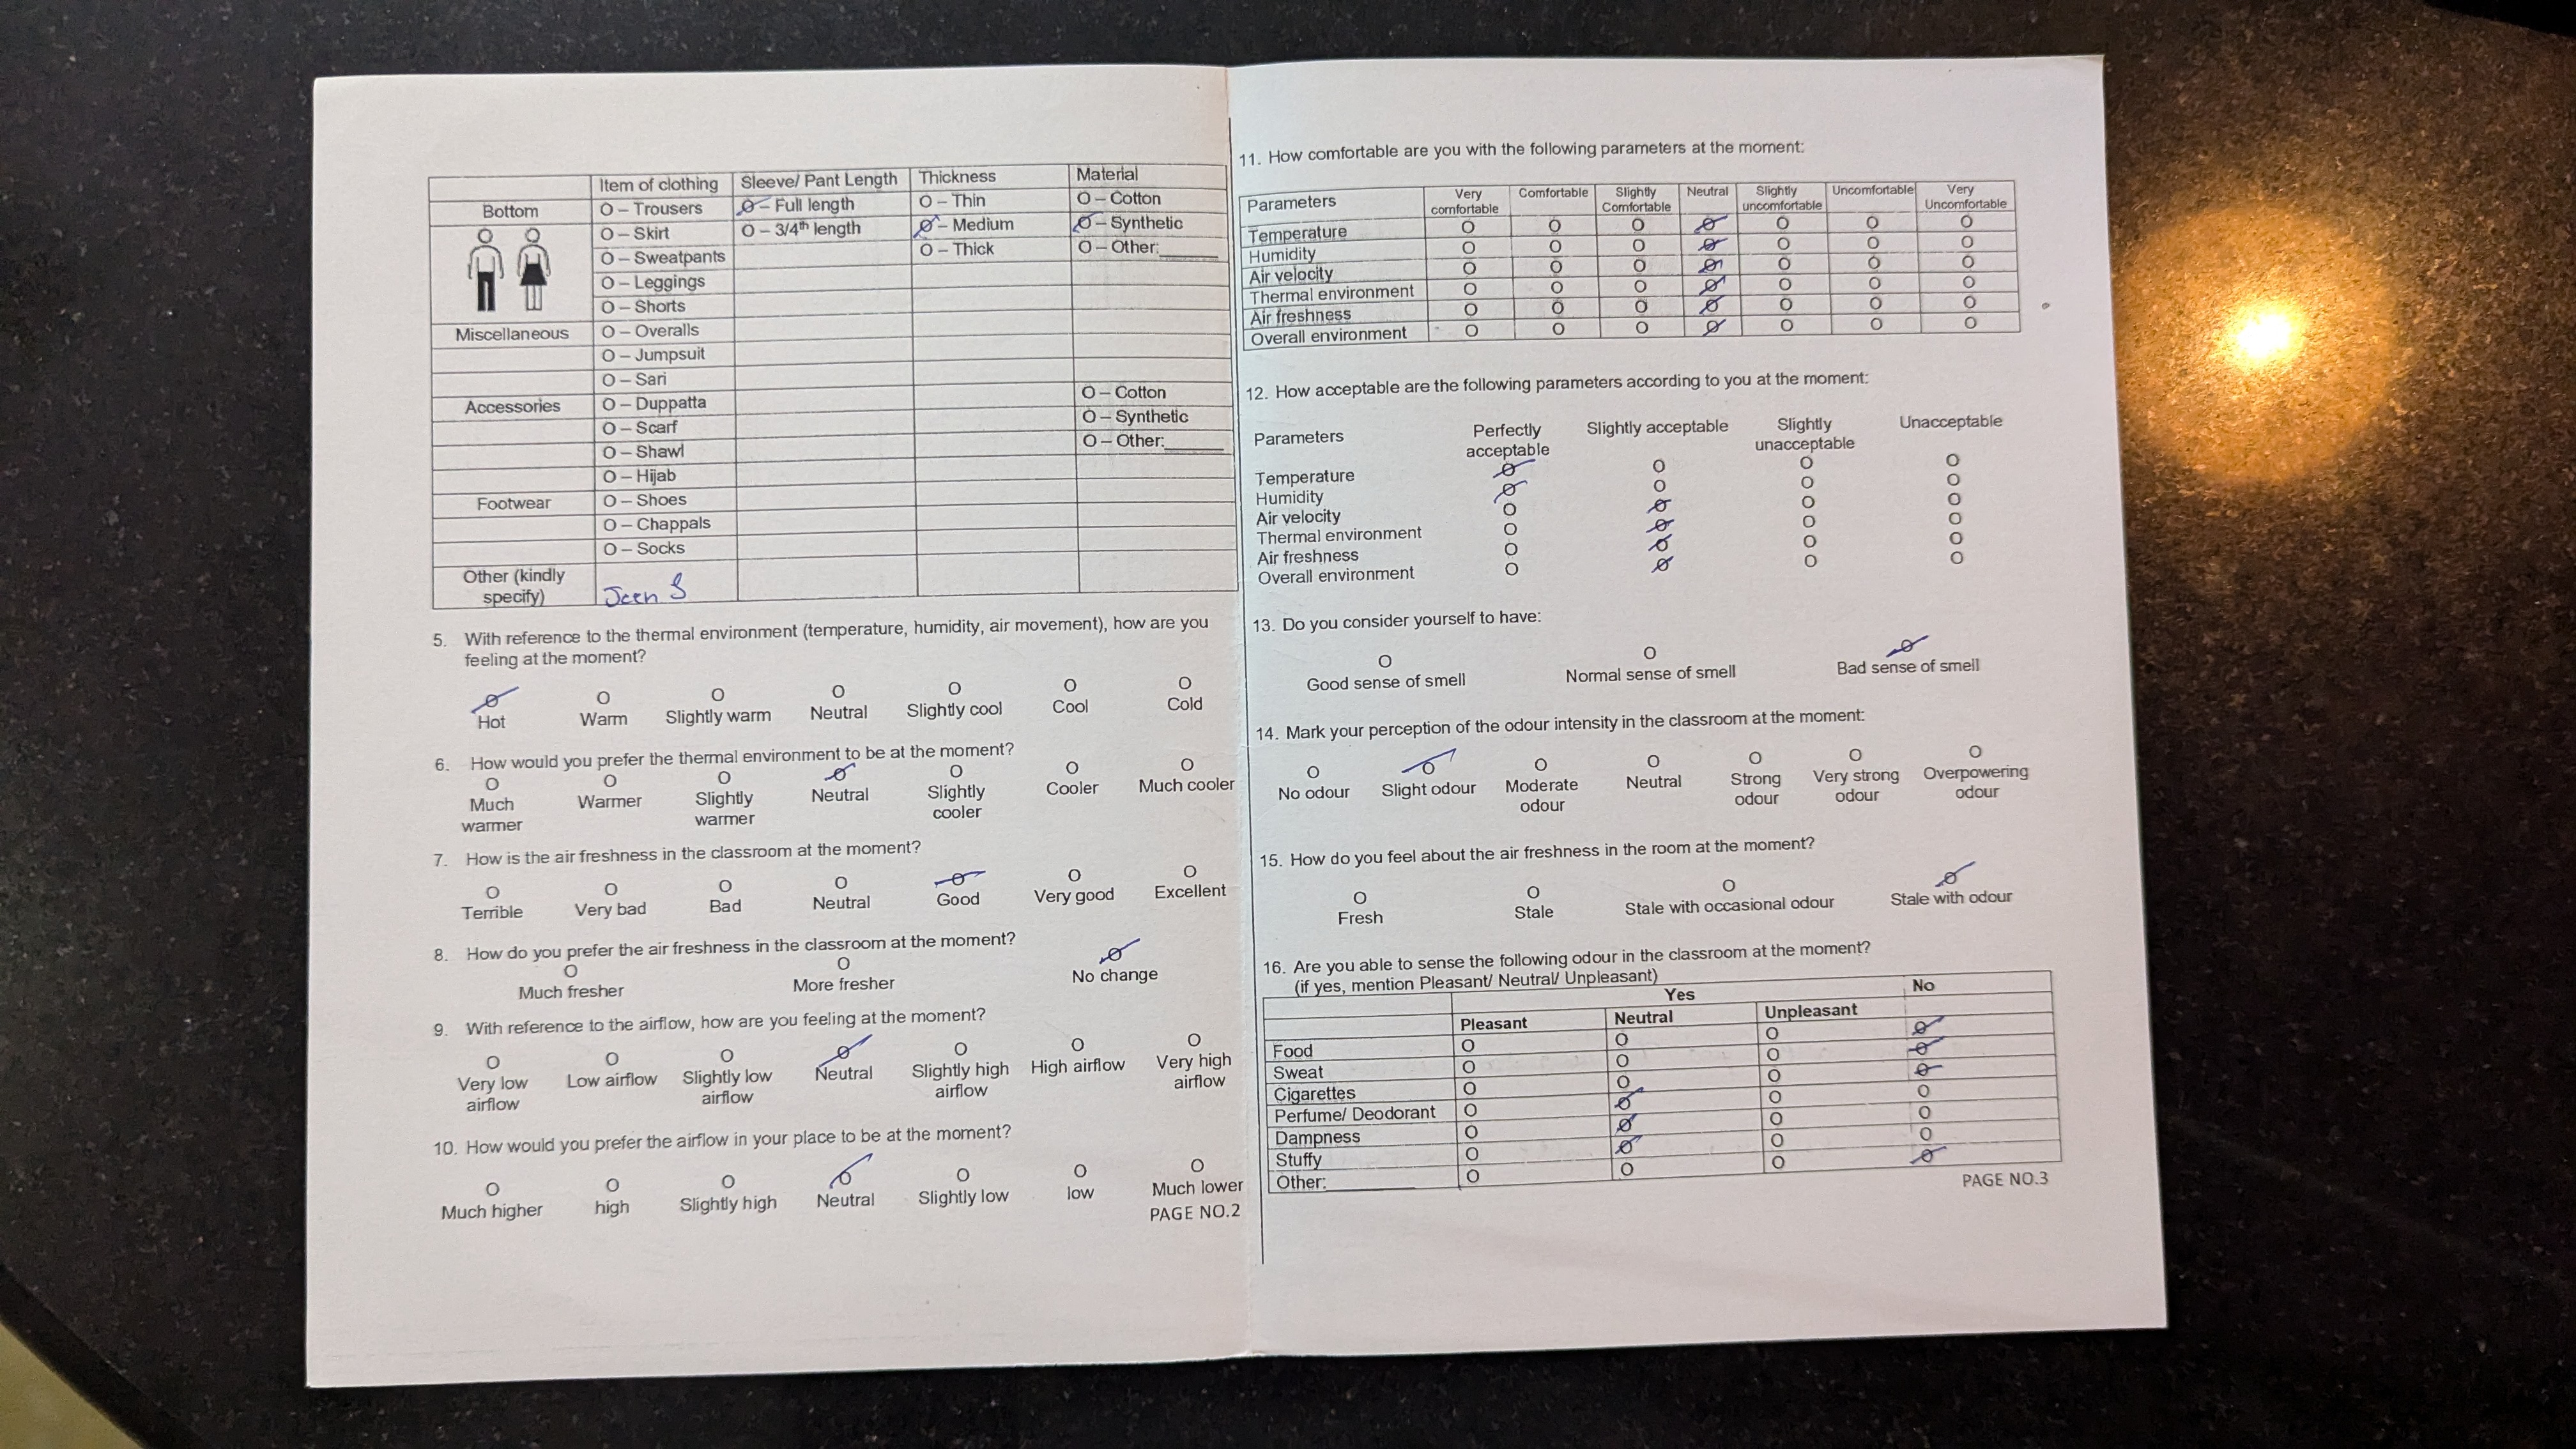 Item of clothing Sleeve/ Pant Length Thickness Material
Bottom O – Trousers O – Full length O – Thin O – Cotton
O – Skirt O – 3/4th length O – Medium O – Synthetic
O – Sweatpants O – Thick O – Other:______
O – Leggings
O – Shorts
Miscellaneous O – Overalls
O – Jumpsuit
O – Sari O – Cotton
Accessories O – Duppatta O – Synthetic
O – Scarf O – Other:______
O – Shawl
O – Hijab
Footwear O – Shoes
O – Chappals
O – Socks
Other (kindly
specify) Jeen S
5. With reference to the thermal environment (temperature, humidity, air movement), how are you
feeling at the moment?
O O O O O O O
Hot Warm Slightly warm Neutral Slightly cool Cool Cold
6. How would you prefer the thermal environment to be at the moment?
O O O O O O O
Much Warmer Slightly Neutral Slightly Cooler Much cooler
warmer warmer cooler
7. How is the air freshness in the classroom at the moment?
O O O O O O O
Terrible Very bad Bad Neutral Good Very good Excellent
8. How do you prefer the air freshness in the classroom at the moment?
O O O
Much fresher More fresher No change
9. With reference to the airflow, how are you feeling at the moment?
O O O O O O O
Very low Low airflow Slightly low Neutral Slightly high High airflow Very high
airflow airflow airflow airflow
10. How would you prefer the airflow in your place to be at the moment?
O O O O O O O
Much higher high Slightly high Neutral Slightly low low Much lower
PAGE NO.2
11. How comfortable are you with the following parameters at the moment:
Parameters Very Comfortable Slightly Neutral Slightly Uncomfortable Very
comfortable Comfortable uncomfortable Uncomfortable
Temperature O O O O O O O
Humidity O O O O O O O
Air velocity O O O O O O O
Thermal environment O O O O O O O
Air freshness O O O O O O O
Overall environment O O O O O O O
12. How acceptable are the following parameters according to you at the moment:
Parameters Perfectly Slightly acceptable Slightly Unacceptable
acceptable unacceptable
Temperature O O O O
Humidity O O O O
Air velocity O O O O
Thermal environment O O O O
Air freshness O O O O
Overall environment O O O O
13. Do you consider yourself to have:
O O O
Good sense of smell Normal sense of smell Bad sense of smell
14. Mark your perception of the odour intensity in the classroom at the moment:
O O O O O O O
No odour Slight odour Moderate Neutral Strong Very strong Overpowering
odour odour odour odour
15. How do you feel about the air freshness in the room at the moment?
O O O O
Fresh Stale Stale with occasional odour Stale with odour
16. Are you able to sense the following odour in the classroom at the moment?
(if yes, mention Pleasant/ Neutral/ Unpleasant)
Yes No
Pleasant Neutral Unpleasant
Food O O O O
Sweat O O O O
Cigarettes O O O O
Perfume/ Deodorant O O O O
Dampness O O O O
Stuffy O O O O
Other:__________ O O O O
PAGE NO.3